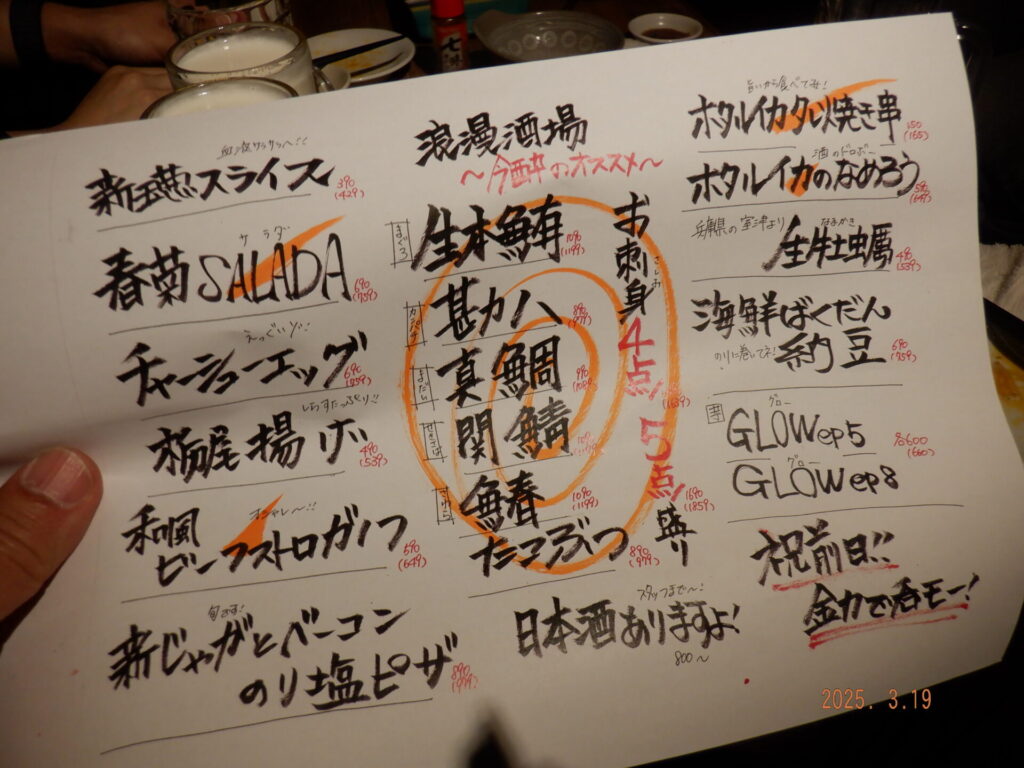 浪漫酒場
～今酔のオススメ～
お刺身
さしみ
4点
(1639)
5点
1690
(1859)
盛り
まぐろ
生本鮪
1090
(1199)
カンパチ
甚カンパ
890
(979)
まだい
真鯛
990
(1089)
せきさば
関鯖
1090
(1199)
さわら
鰆
1090
(1199)
たこぶつ
890
(979)
スタッフまで～!
日本酒ありますよ!
800～
新玉葱スライス
390
(429)
サラダ
春菊SALADA
690
(759)
えっぐいゾ!!
チャーシューエッグ
690
(759)
しらすたっぷり!!
栃尾揚げ
490
(539)
オシャレ～!!
和風
ビーフストロガノフ
590
(649)
旬です!
新じゃがとベーコン
のり塩ピザ
890
(979)
旨いから食べてみ!
ホタルイカタル焼き串
150
(165)
酒のドロボー
ホタルイカのなめろう
590
(649)
兵庫県の室津より
なまがき
生牡蠣
490
(539)
海鮮ばくだん
のりに巻いてネ!
納豆
690
(759)
グロー
GLOW ep5
各600
(660)
グロー
GLOW ep8
祝前日!!
全力で呑モー!
七味
2025. 3.19